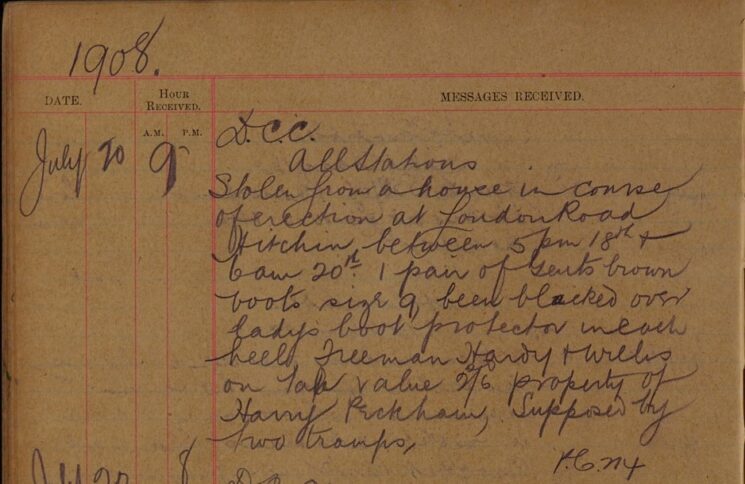 1908.
DATE. HOUR RECEIVED. MESSAGES RECEIVED.
A.M. P.M.
July 20 9 D.C.C.
All Stations
Stolen from a house in course
of erection at London Road
Hitchin, between 5 pm 18th &
6 am 20th. 1 pair of Gents brown
boots size 9, been blacked over
ladys boot protector in each
heel, Freeman Hardy & Willis
on tab value 2/6 property of
Harry Peckham, Supposed by
two tramps,
P.C.
July 20 8